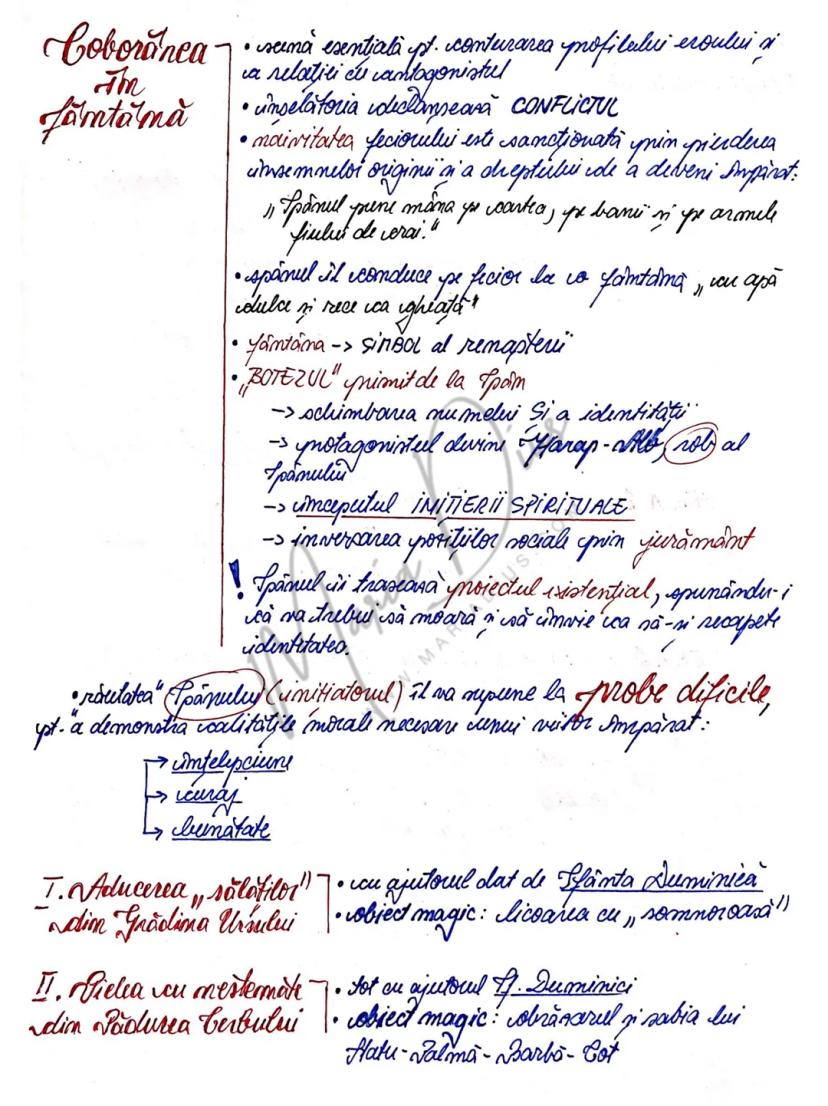 Coborârea
în
fântână
• scenă esențială pt. conturarea profilului eroului și
a relației cu antagonistul
• înșelătoria declanșează CONFLICTUL
• naivitatea feciorului este sancționată prin pierderea
însemnelor originii și a dreptului de a deveni împărat:
„Spânul pune mâna pe cartea, pe banii și pe armele
fiului de crai."
• spânul îl conduce pe fecior la o fântână „cu apă
dulce și rece ca gheața"
• fântâna -> SIMBOL al renașterii
• „BOTEZUL" primit de la Spân
-> schimbarea numelui și a identității
-> protagonistul devine Harap-Alb, rob al
Spânului
-> începutul INIȚIERII SPIRITUALE
-> inversarea pozițiilor sociale prin jurământ
! Spânul îi trasează proiectul existențial, spunându-i
că va trebui să moară și să învie ca să-și recapete
identitatea.
• răutatea" Spânului (inițiatorul) îl va supune la probe dificile,
pt. a demonstra calitățile morale necesare unui viitor împărat:
-> înțelepciune
-> curaj
-> bunătate
I. Aducerea „sălăților"
din Grădina Ursului
• cu ajutorul dat de Sfânta Duminică
• obiect magic: licoarea cu „somnoroasă"
II. Pielea cu nestemate
din Pădurea Cerbului
• tot cu ajutorul Sf. Duminici
• obiect magic: obrăzarul și sabia lui
Statu-Palmă-Barbă-Cot